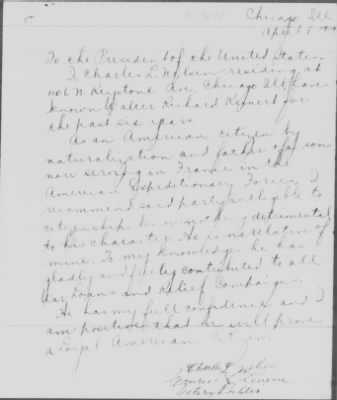 Chicago Ill
Apr 8" 1919
To the President of the United States.
I, Charles L. Nelson residing at
1106 N. Keystone Ave, Chicago Ill have
known Walter Richard for
the past six years
As an American citizen by
naturalization and father of a son
now serving in France in the
American Expeditionary Forces, I
recommend said party as eligible to
citizenship know nothing detrimental
to his character. He is no relation of
mine. To my knowledge he has
gladly and freely contributed to all
War Loans and Relief Campaigns.
He has my full confidence and I
am positive that he will prove
a Loyal American Citizen
Charles L. Nelson
Notary Public